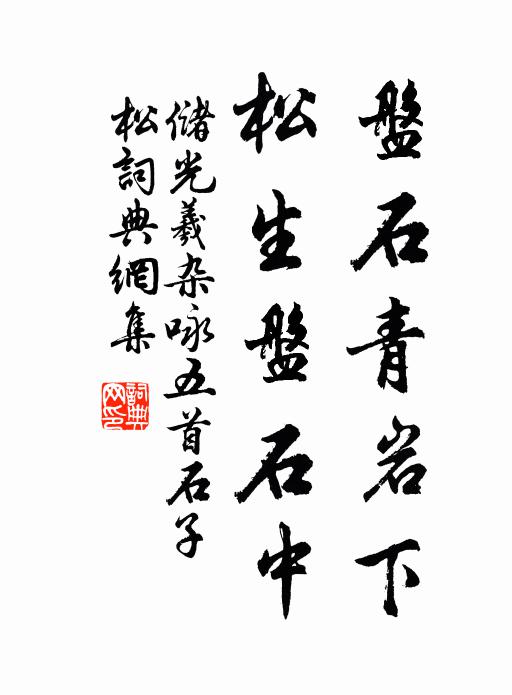 盤石青岩下
松生盤石中
儲光羲杂咏五首石子
松詞典網集
詞典网印